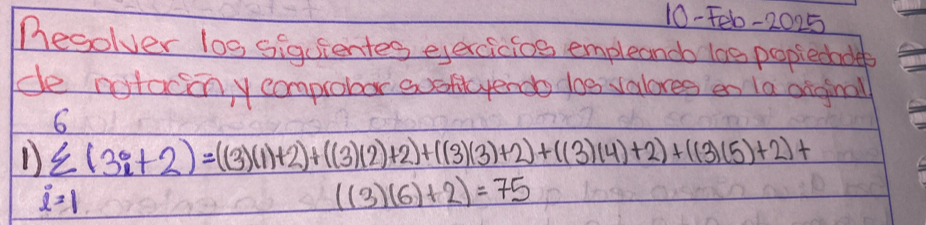 10-Feb-2025
Resolver los siguientes ejercicios empleando las propiedades
de notación y comprobar sustituyendo los valores en la original
6
1) Σ (3i+2) = ((3)(1)+2)+((3)(2)+2)+((3)(3)+2)+((3)(4)+2)+((3)(5)+2)+
i=1 ((3)(6)+2)=75